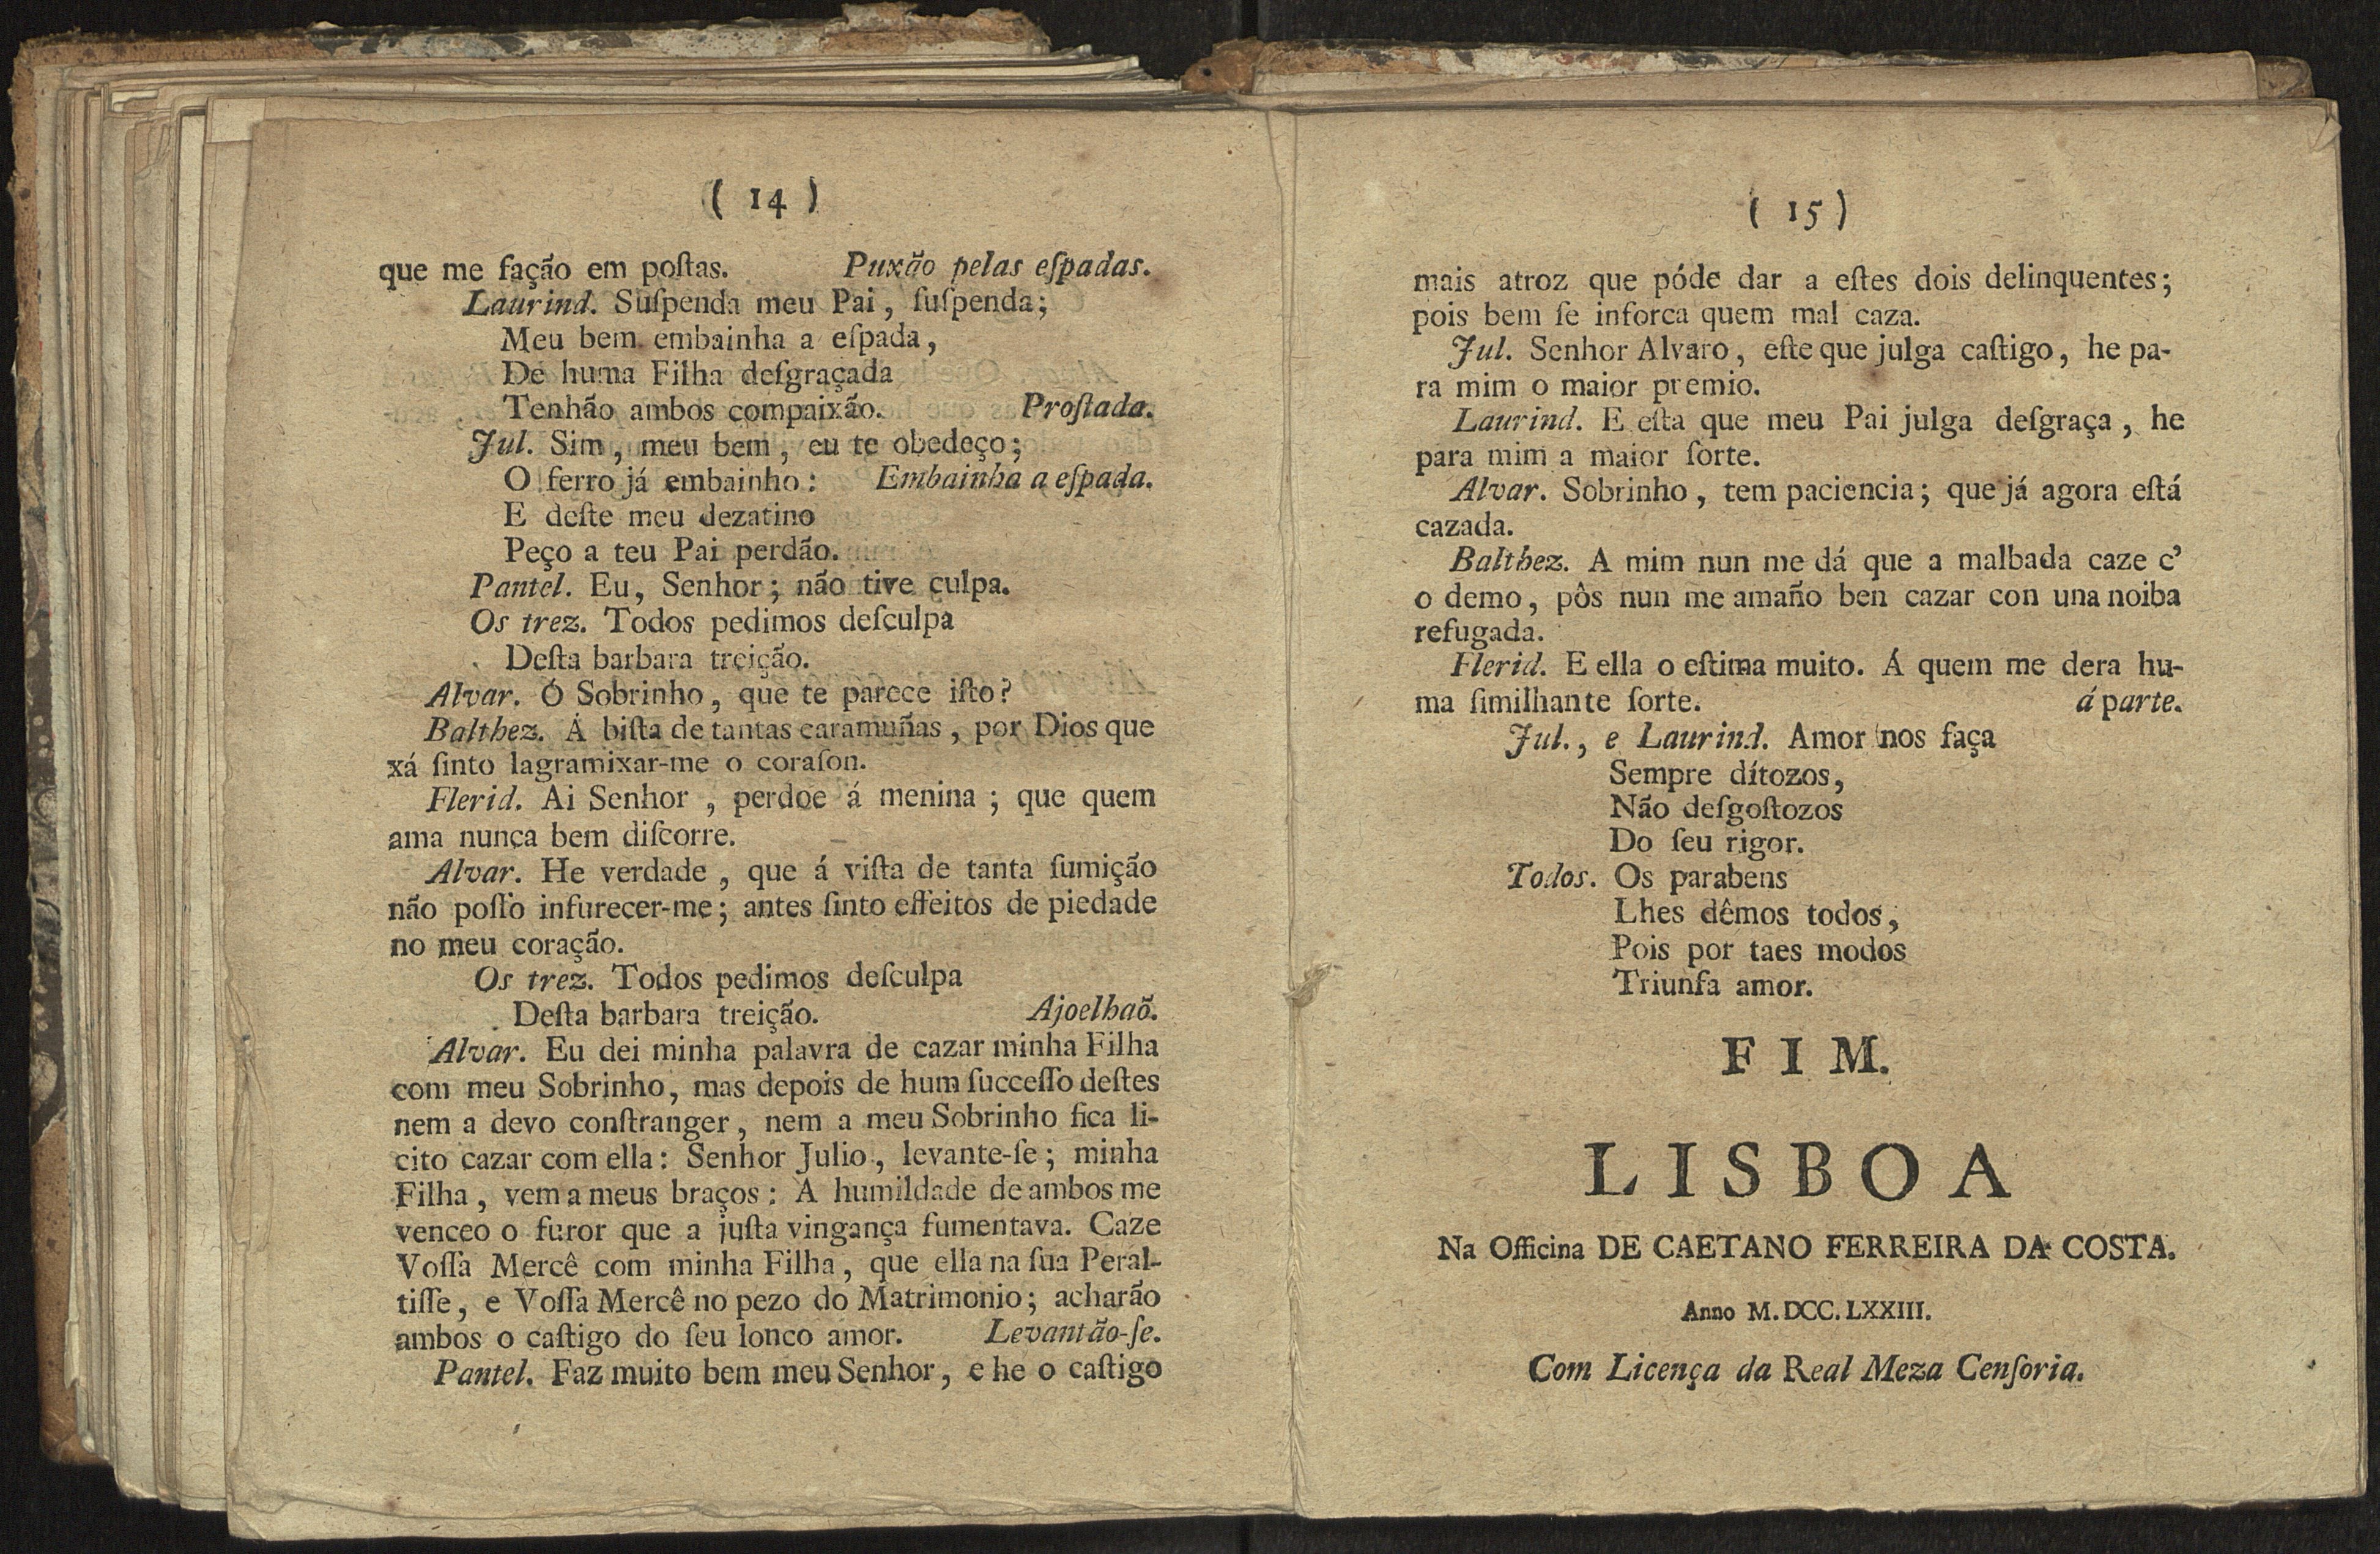 ( 14 )
que me fação em poſtas. Puxão pelas eſpadas.
Laurind. Suſpenda meu Pai, ſuſpenda;
Meu bem embainha a eſpada,
De huma Filha deſgraçada
Tenhão ambos compaixão. Proſtada.
Jul. Sim, meu bem, eu te obedeço;
O ferro já embainho: Embainha a eſpada.
E deſte meu dezatino
Peço a teu Pai perdão.
Pantel. Eu, Senhor; não tive culpa.
Os trez. Todos pedimos deſculpa
Deſta barbara treição.
Alvar. Ó Sobrinho, que te parece iſto?
Balthez. Á biſta de tantas caramuñas, por Dios que
xá ſinto lagramixar-me o coraſon.
Flerid. Ai Senhor, perdoe á menina; que quem
ama nunca bem diſcorre.
Alvar. He verdade, que á viſta de tanta ſumição
não poſſo infurecer-me; antes ſinto effeitos de piedade
no meu coração.
Os trez. Todos pedimos deſculpa
Deſta barbara treição. Ajoelhaõ.
Alvar. Eu dei minha palavra de cazar minha Filha
com meu Sobrinho, mas depois de hum ſucceſſo deſtes
nem a devo conſtranger, nem a meu Sobrinho fica li-
cito cazar com ella: Senhor Julio, levante-ſe; minha
Filha, vem a meus braços: A humildade de ambos me
venceo o furor que a juſta vingança fumentava. Caze
Voſſa Mercê com minha Filha, que ella na ſua Peral-
tiſſe, e Voſſa Mercê no pezo do Matrimonio; acharão
ambos o caſtigo do ſeu lonco amor. Levantão-ſe.
Pantel. Faz muito bem meu Senhor, e he o caſtigo
( 15 )
mais atroz que póde dar a eſtes dois delinquentes;
pois bem ſe inforca quem mal caza.
Jul. Senhor Alvaro, eſte que julga caſtigo, he pa-
ra mim o maior premio.
Laurind. E eſta que meu Pai julga deſgraça, he
para mim a maior ſorte.
Alvar. Sobrinho, tem paciencia; que já agora eſtá
cazada.
Balthez. A mim nun me dá que a malbada caze c'
o demo, pôs nun me amaño ben cazar con una noiba
refugada.
Flerid. E ella o eſtima muito. Á quem me dera hu-
ma ſimilhante ſorte. á parte.
Jul., e Laurind. Amor nos faça
Sempre dítozos,
Não deſgoſtozos
Do ſeu rigor.
Todos. Os parabens
Lhes dêmos todos,
Pois por taes modos
Triunfa amor.
FIM.
LISBOA
Na Officina DE CAETANO FERREIRA DA COSTA.
Anno M.DCC.LXXIII.
Com Licença da Real Meza Cenſoria.